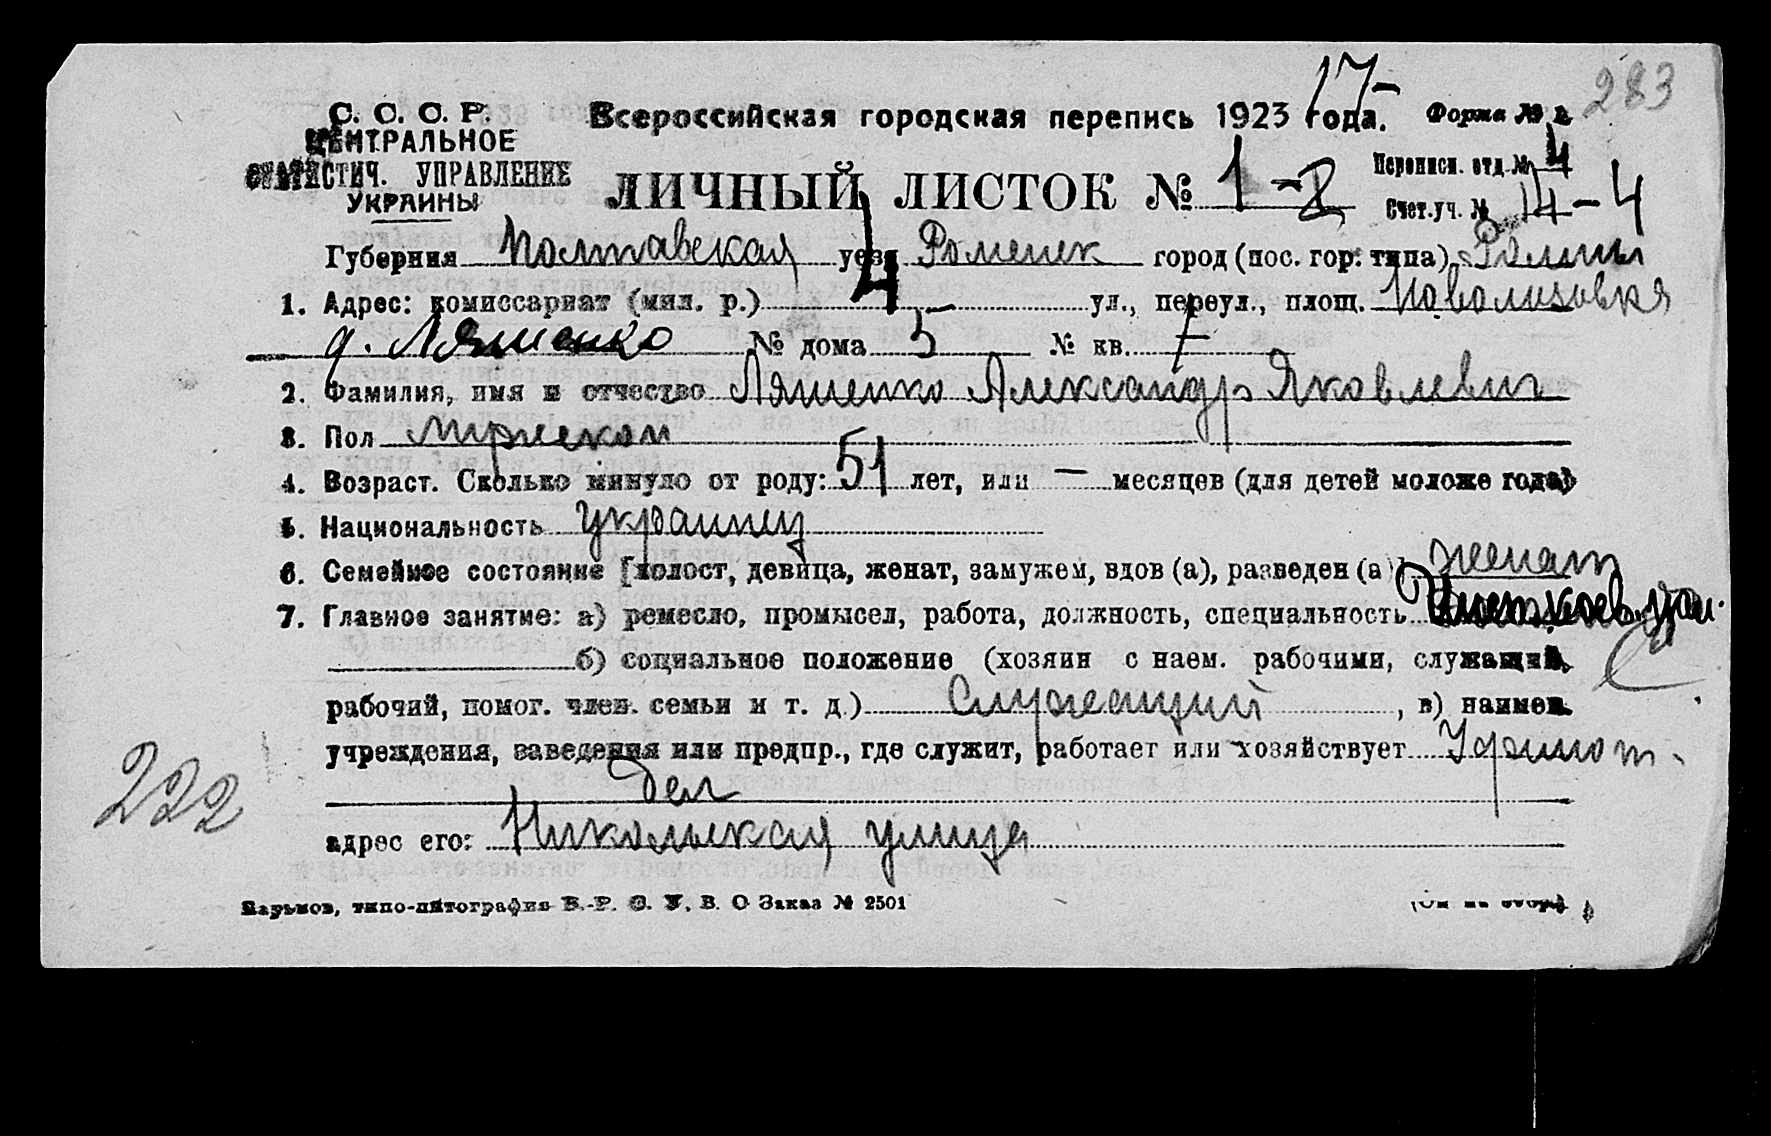 17-
283
С. С. С. Р.
ЦЕНТРАЛЬНОЕ
СТАТИСТИЧ. УПРАВЛЕНИЕ
УКРАИНЫ
Всероссийская городская перепись 1923 года.
Форма № 2
ЛИЧНЫЙ ЛИСТОК № 1-2
Переписн. отд. № 4
Счет. уч. № 14-4
Губерния Полтавская уезд Роменск город (пос. гор. типа) Ромны
1. Адрес: комиссариат (мил. р.) 4 — ул., переул., площ.
д. Ляшенко № дома 5 № кв.
2. Фамилия, имя и отчество Ляшенко Александр Яковлевич
3. Пол мужской
4. Возраст. Сколько минуло от роду: 51 лет, или — месяцев (для детей моложе года)
5. Национальность украинец
6. Семейное состояние [холост, девица, женат, замужем, вдов (а), разведен (а)] женат
7. Главное занятие: а) ремесло, промысел, работа, должность, специальность
б) социальное положение (хозяин с наем. рабочими, служащий,
рабочий, помог. член. семьи и т. д.) Служащий, в) наимен.
учреждения, заведения или предпр., где служит, работает или хозяйствует Уфинот-
дел
адрес его: Никольская улица
222
Харьков, типо-литография В. О Заказ № 2501